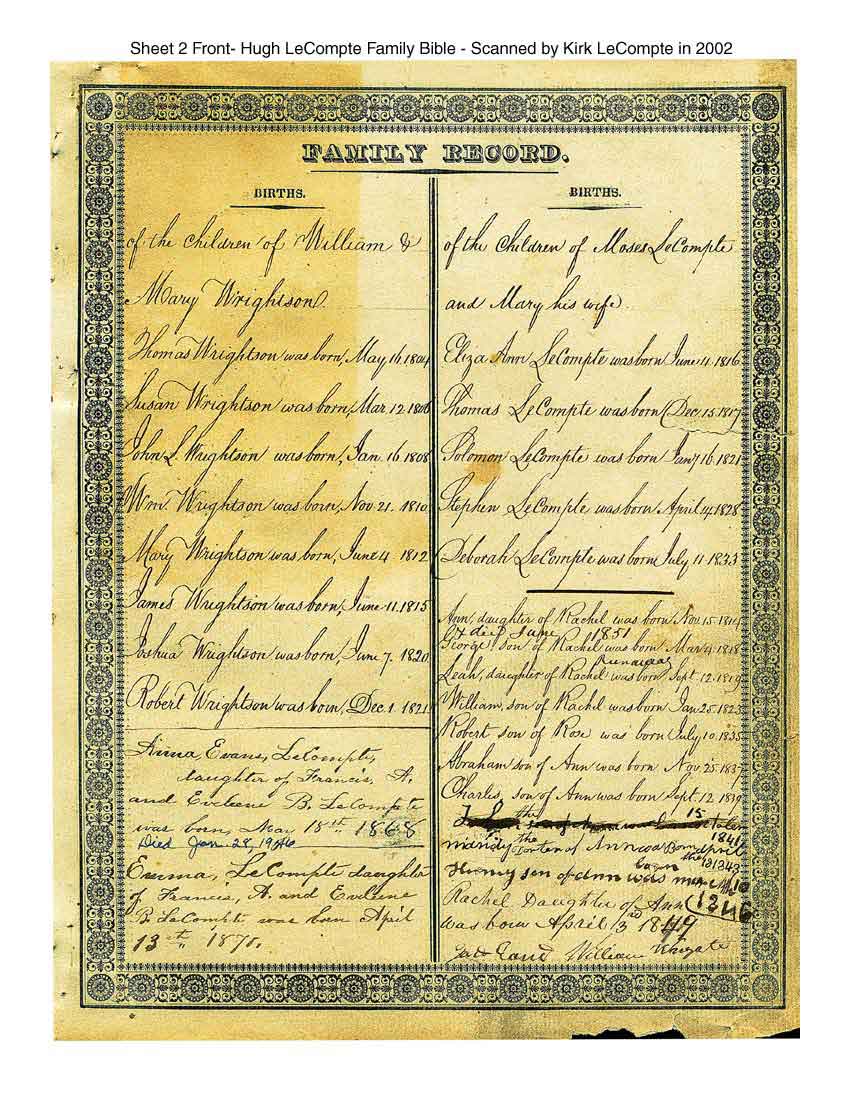 Sheet 2 Front- Hugh LeCompte Family Bible - Scanned by Kirk LeCompte in 2002
FAMILY RECORD.
BIRTHS.
of the children of William &
Mary Wrightson.
Thomas Wrightson was born, May 16 1804
Susan Wrightson was born, Mar. 12 1806
John S. Wrightson was born, Jan. 16 1808
Wm. Wrightson was born, Nov 21. 1810
Mary Wrightson was born, June 4 1812
James Wrightson was born, June 11. 1815
Joshua Wrightson was born, June 7. 1820
Robert Wrightson was born, Dec. 1. 1821
Anna Evans, LeCompte,
daughter of Francis, A.
and Eveline B. LeCompte
was born, Nov 18th 1868
Died Jan. 28, 1946
Emma, LeCompte daughter
of Francis, A. and Eveline
B. LeCompte was born April
13th 1870.
BIRTHS.
of the Children of Moses LeCompte
and Mary his wife.
Eliza Ann LeCompte was born June 11. 1816
Thomas LeCompte was born Dec 15. 1817
Solomon LeCompte was born Jany 16. 1821
Stephen LeCompte was born April 14. 1828
Deborah LeCompte was born July 11. 1833
Ann, daughter of Rachel was born Nov 15. 1814
& died June 1851
George, son of Rachel was born Mar 4. 1818
Runaway
Leah, daughter of Rachel was born, Sept. 12. 1819
William, son of Rachel was born Jan 25. 1823
Robert son of Rose was born July 10. 1835
Abraham son of Ann was born Nov 25. 1837
Charles, son of Ann was born Sept. 12 1839
the 15
1841
of Ann was Born April
the 13 1843
born
son of ann was
1846
Rachel Daughter of Ann
was born April 13rd 1849
William